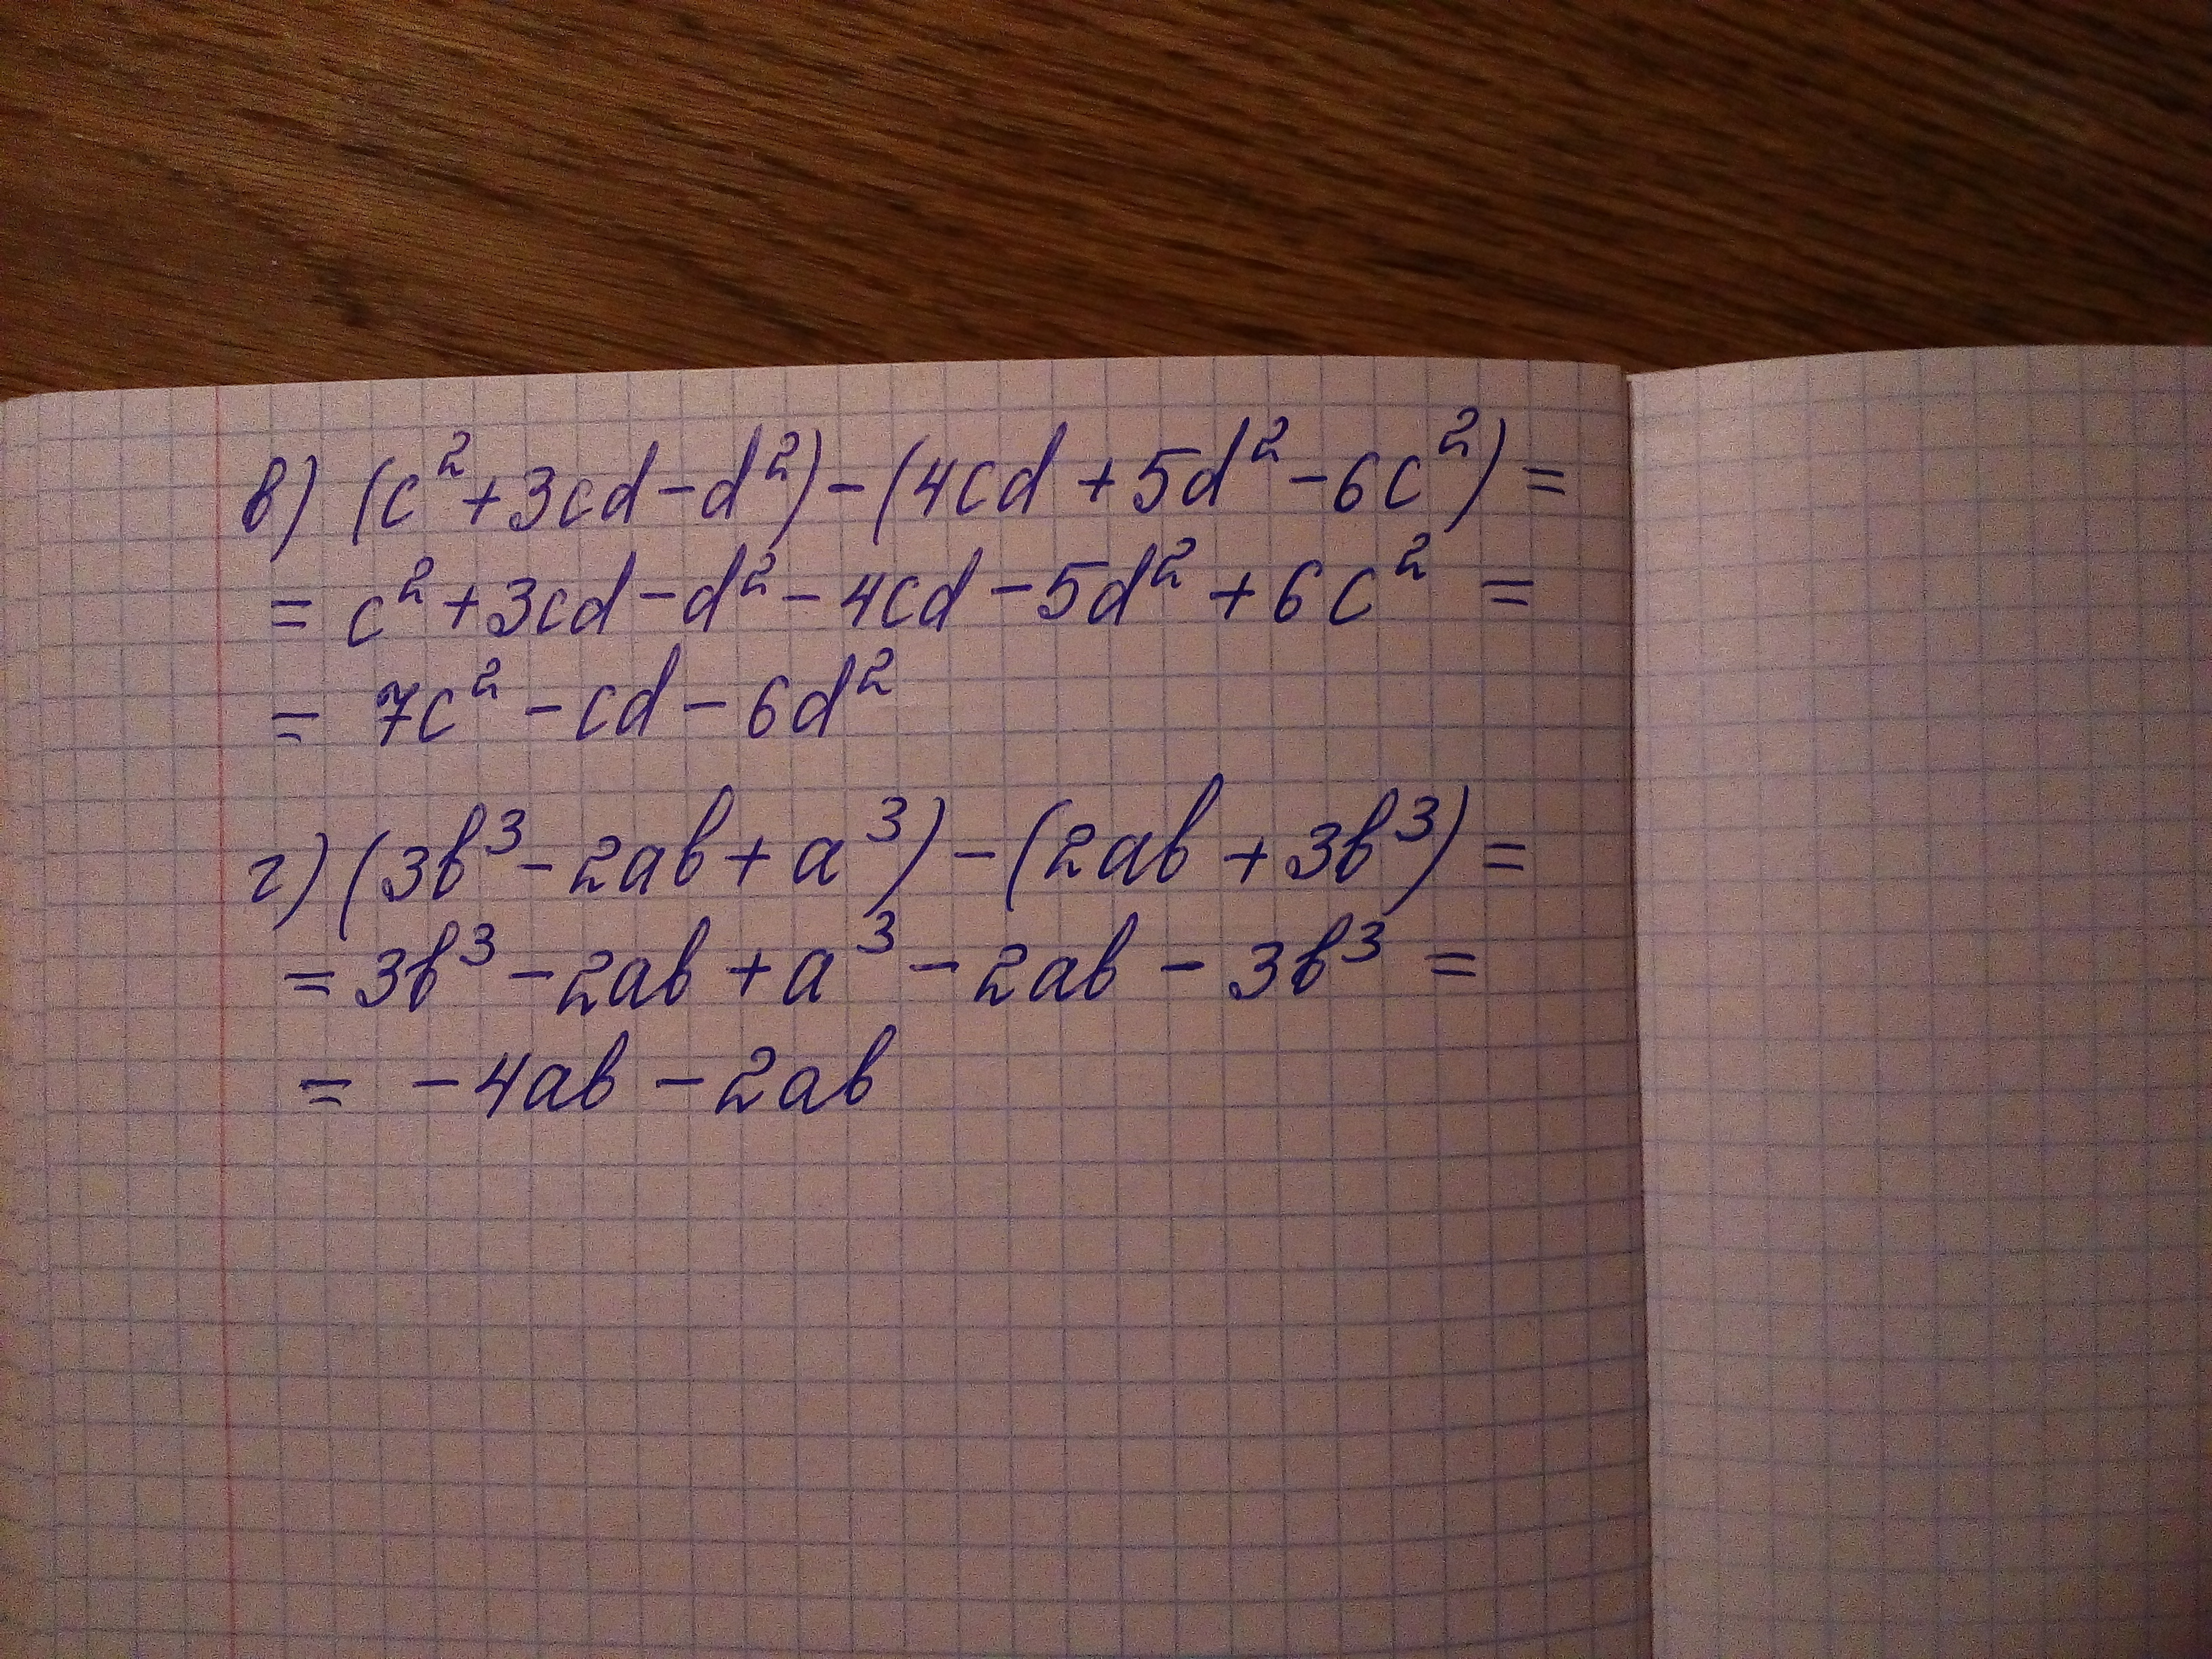 в) (c² + 3cd - d²) - (4cd + 5d² - 6c²) =
= c² + 3cd - d² - 4cd - 5d² + 6c² =
= 7c² - cd - 6d²
г) (3b³ - 2ab + a³) - (2ab + 3b³) =
= 3b³ - 2ab + a³ - 2ab - 3b³ =
= - 4ab - 2ab